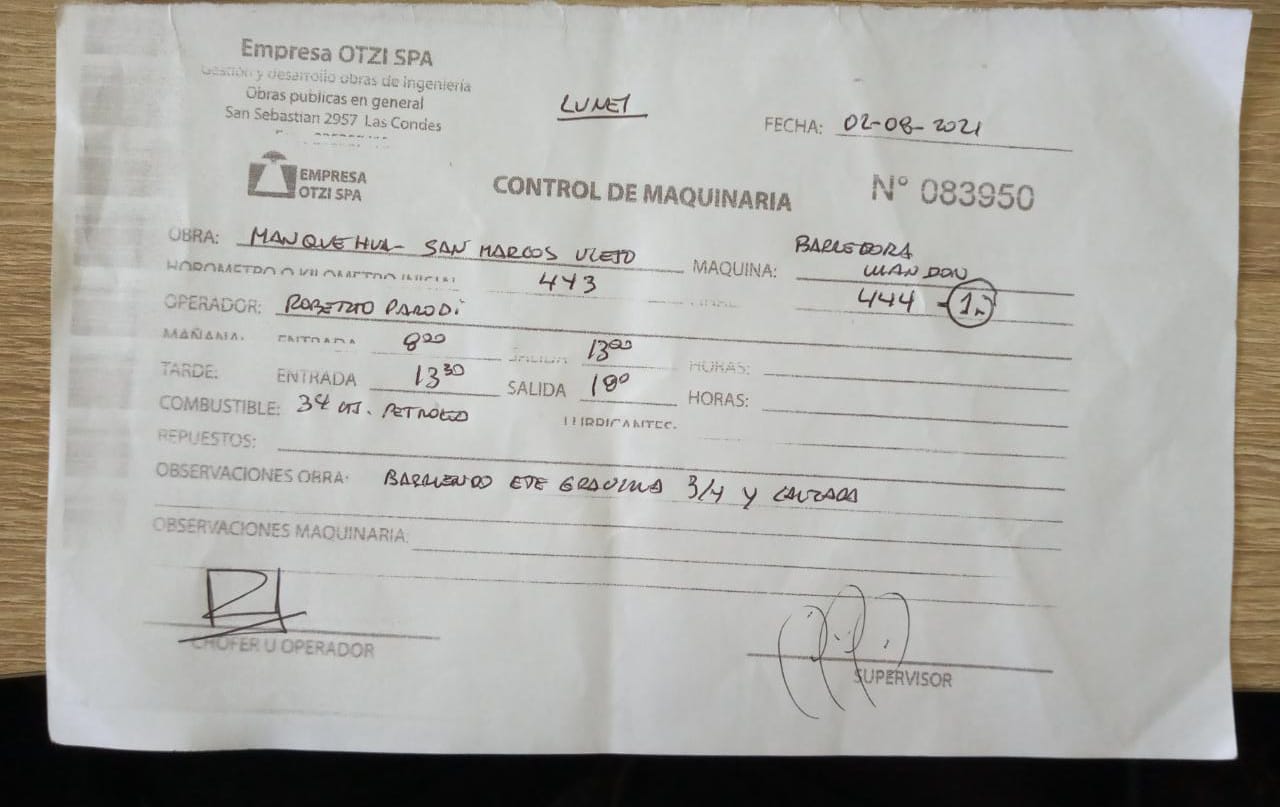 Empresa OTZI SPA
Gestión y desarrollo obras de Ingeniería
Obras publicas en general
San Sebastian 2957 Las Condes
LUNES
FECHA: 02-08-2021
EMPRESA
OTZI SPA
CONTROL DE MAQUINARIA
N° 083950
OBRA: MANQUEHUA- SAN MARCOS VIEJO MAQUINA: BARREDORA
HOROMETRO O KILOMETRO INICIAL 443 444 -
OPERADOR: ROBERTO PARODi
MAÑANA: ENTRADA 800 SALIDA 1300 HORAS:
TARDE: ENTRADA 13 30 SALIDA 18 0 HORAS:
COMBUSTIBLE: 34 LTS. PETROLEO LUBRICANTES:
REPUESTOS:
OBSERVACIONES OBRA: BARRIENDO EJE GRAVILLA 3/4 Y CALZADA
OBSERVACIONES MAQUINARIA:
CHOFER U OPERADOR
SUPERVISOR